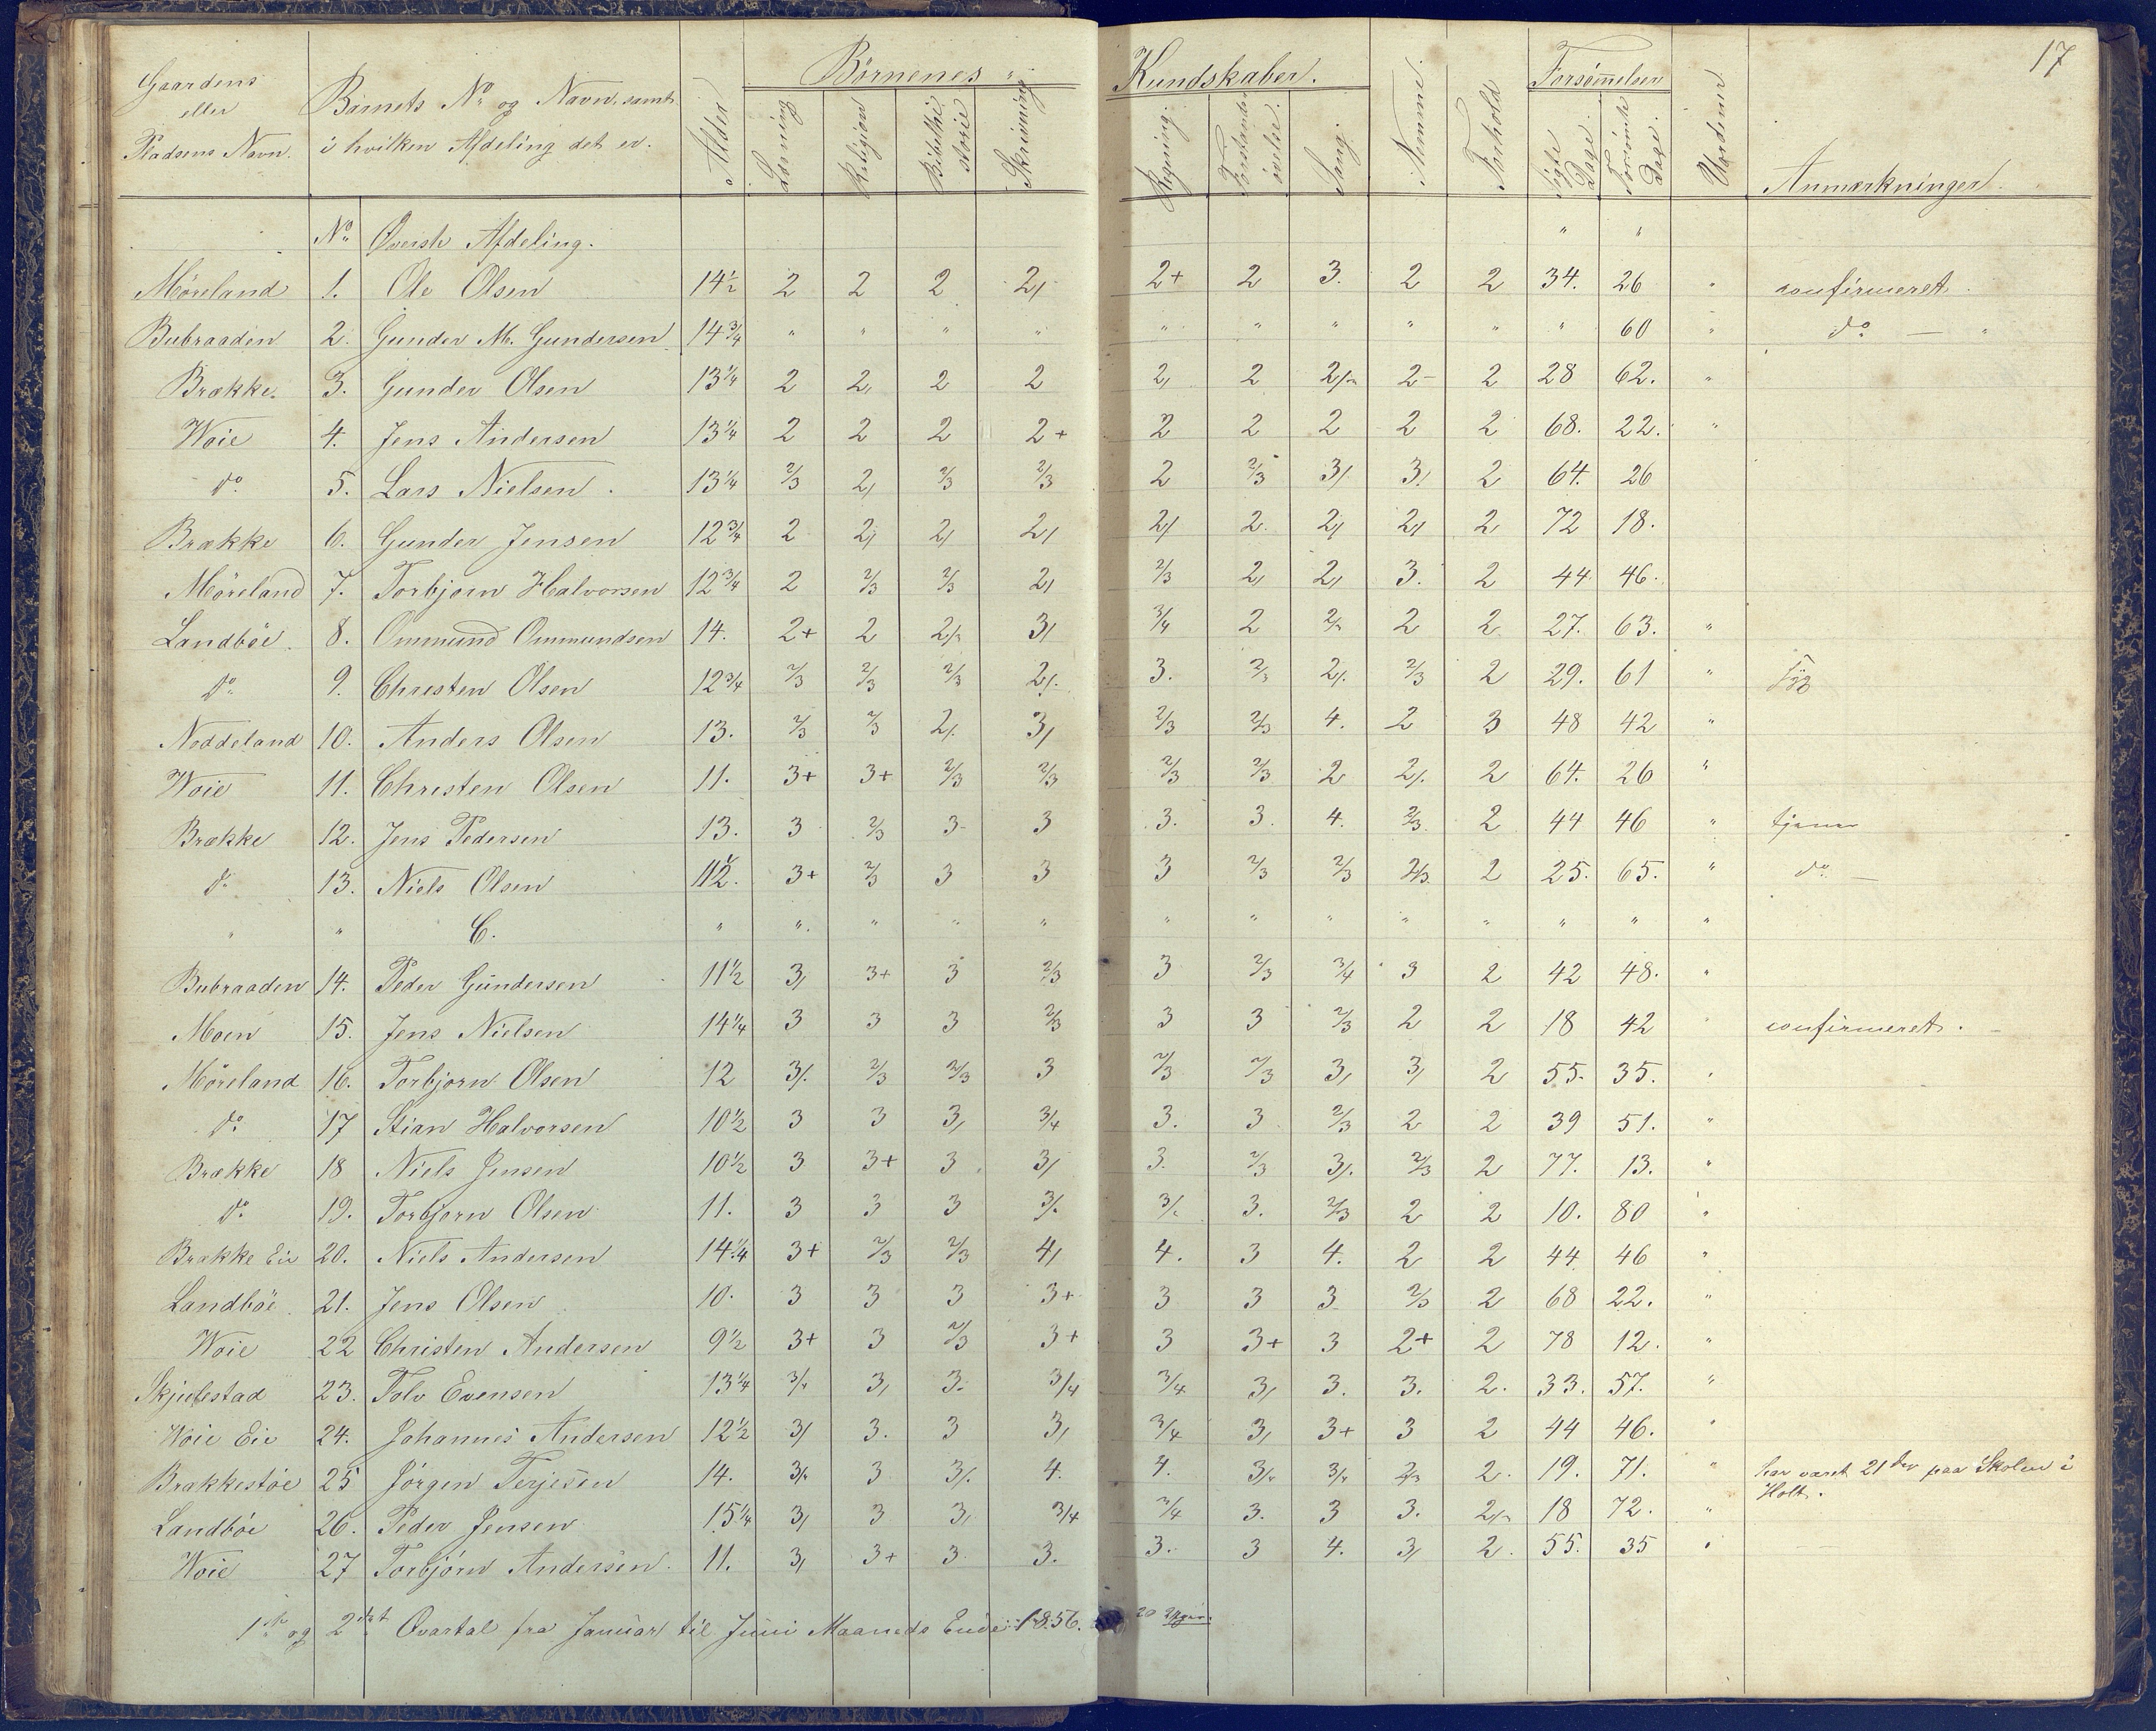 17
Gaardens eller Pladsens Navn. Barnets No og Navn, samt i hvilken Afdeling det er. Alder Börnenes Kundskaber. Nemme. Forhold Forsømmelser Anmærkninger.
Læsning Religion Bibelhistorie Skrivning Regning Forstandsøvelse. Sang. Søgte Dage. Forsømte Dage.
No Överste Afdeling. " "
Möreland 1. Ole Olsen 14½ 2 2 2 2/ 2+ 2 3. 2 2 34. 26 " confirmeret.
Bubraaden 2. Gunder M. Gundersen 14¾ " " " " " " " " " " 60 " do — "
Brække 3. Gunder Olsen 13¼ 2 2/ 2 2 2/ 2 2/÷ 2- 2 28 62. "
Woie 4. Jens Andersen 13¼ 2 2 2 2+ 2 2 2 2 2 68. 22. "
do 5. Lars Nielsen. 13¼ 2/3 2/ 2/3 2/3 2 2/3 3/ 3/ 2 64. 26
Brække 6. Gunder Jensen 12¾ 2 2/ 2/ 2/ 2/ 2. 2/ 2/ 2 72 18.
Möreland 7. Torbjorn Halvorsen 12¾ 2 2/3 2/3 2/ 2/3 2/ 2/ 3. 2 44 46.
Landböe. 8. Ommund Ommundsen 14. 2+ 2 2/÷ 3/ 3/4 2 2/÷ 2 2 27. 63. "
do 9. Christen Olsen 12¾ 2/3 2/3 2/3 2/. 3. 2/3 2/. 2/3 2 29. 61 "
Noddeland 10. Anders Olsen 13. 2/3 2/3 2/. 3/ 2/3 2/3 4. 2 3 48 42 "
Woie 11. Christen Olsen 11. 3+ 3+ 2/3 2/3 2/3 2/3 2 2/. 2 64. 26 "
Brække 12. Jens Pedersen 13. 3 2/3 3 3 3. 3. 4. 2/3 2 44 46 " tjener
do 13. Niels Olsen 11½. 3+ 2/3 3 3 3 2/3 2/3 2/3 2 25. 65. " do —
" " C. " " " " " " " " " " " " "
Bubraaden 14. Peder Gundersen 11½ 3/ 3+ 3 2/3 3 2/3 3/4 3 2 42 48. "
Moen 15. Jens Nielsen 14¼ 3 3 3 2/3 3 3 2/3 2 2 18 42 " confirmeret.
Möreland 16. Torbjorn Olsen 12 3/. 2/3 2/3 3 2/3 2/3 3/ 3/ 2 55. 35. "
do 17 Stian Halvorsen 10½ 3 3 3/ 3/4 3. 3 2/3 2 2 39 51. "
Brække 18 Niels Jensen 10½ 3 3+ 3 3/ 3. 2/3 3/. 2/3 2 77. 13. "
do 19. Torbjorn Olsen 11. 3 3 3 3/. 3/. 3. 2/3 2 2 10. 80 "
Brække Eie 20. Niels Andersen 14¼ 3+ 2/3 2/3 4/ 4. 3 4. 2 2 44 46 "
Landböe. 21. Jens Olsen 10. 3 3 3 3+ 3 3 3 2/3 2 68 22. "
Woie 22 Christen Andersen 9½ 3+ 3 2/3 3+ 3 3+ 3 2+ 2 78 12. "
Skjulestad 23. Tolv Evensen 13¼ 3/÷ 3/ 3. 3/4 3/4 3/ 3. 3. 2. 33. 57. "
Woie Eie 24. Johannes Andersen 12½ 3/ 3. 3 3/ 3/4 3/ 3+ 3 2 44 46. "
Brækkestöe 25 Jörgen Terjesen 14. 3/÷ 3 3/. 4. 4. 3/÷ 3/÷ 2/3 2. 19. 71. " har været 21 paa Skolen i
Holt.
Landböe 26. Peder Jensen 15¼ 3/ 3 3/ 3/4 3/4 3. 3 3. 2/÷ 18 72. "
Woie 27 Torbjörn Andersen. 11. 3/ 3+ 3 3. 3. 3 4. 3/ 2. 55. 35 "
1ste og 2det Qvartal fra Januar til Juni Maaneds Ende 1856. 20 Uger.